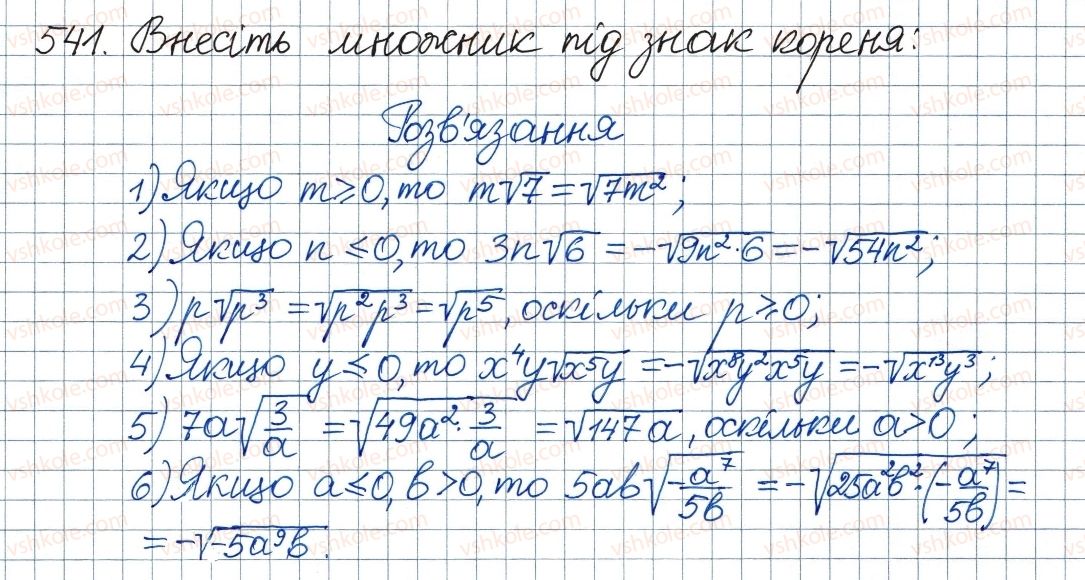 541. Внесіть множник під знак кореня:
Розв'язання
1) Якщо m ≥ 0, то m√7 = √(7m²);
2) Якщо n ≤ 0, то 3n√6 = -√(9n²·6) = -√(54n²);
3) p√(p³) = √(p²p³) = √(p⁵), оскільки p ≥ 0;
4) Якщо y ≤ 0, то x⁴y√(x⁵y) = -√(x⁸y²x⁵y) = -√(x¹³y³);
5) 7a√(3/a) = √(49a²·3/a) = √(147a), оскільки a > 0;
6) Якщо a ≤ 0, b > 0, то 5ab√(-a⁷/5b) = -√(25a²b²·(-a⁷/5b)) =
= -√(-5a⁹b).